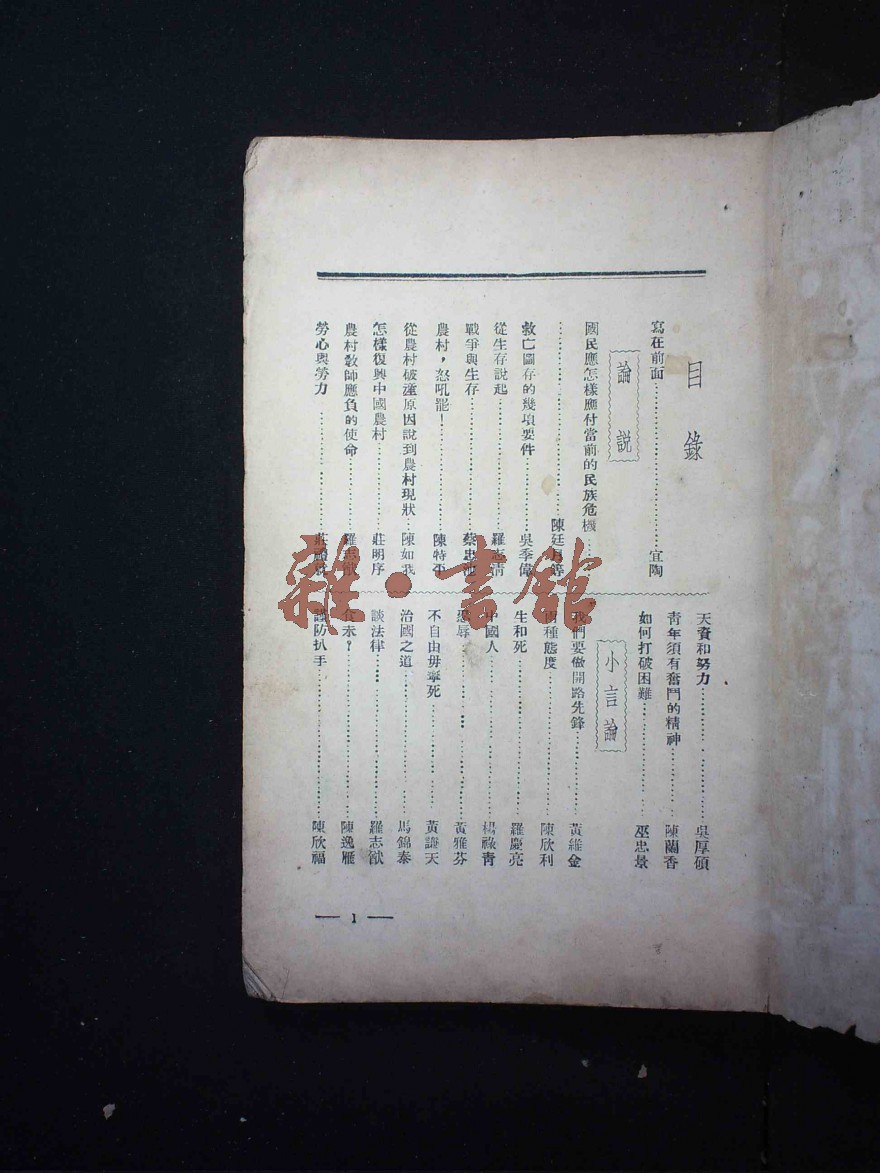 目錄
寫在前面……………………宜陶
論說
國民應怎樣應付當前的民族危機……
……………………陳廷月等
救亡圖存的幾項要件…………吳季偉
從生存說起………………羅志清
戰爭與生存………………蔡忠池
農村，怒吼罷！…………陳特丕
從農村破產原因說到農村現狀…陳如我
怎樣復興中國農村…………莊明序
農村教師應負的使命…………羅志猷
勞心與勞力………………莊
天資和努力………………吳厚碩
青年須有奮鬥的精神…………陳蘭香
如何打破困難………………巫忠景
小言論
我們要做開路先鋒…………黃維金
兩種態度………………陳欣利
生和死………………羅慶亮
中國人………………楊祿青
恥辱………………黃雅芬
不自由毋寧死…………黃謙天
治國之道………………馬錦泰
談法律………………羅志猷
食未？………………陳逸雁
謹防扒手………………陳欣福
— 1 —
雜·書館